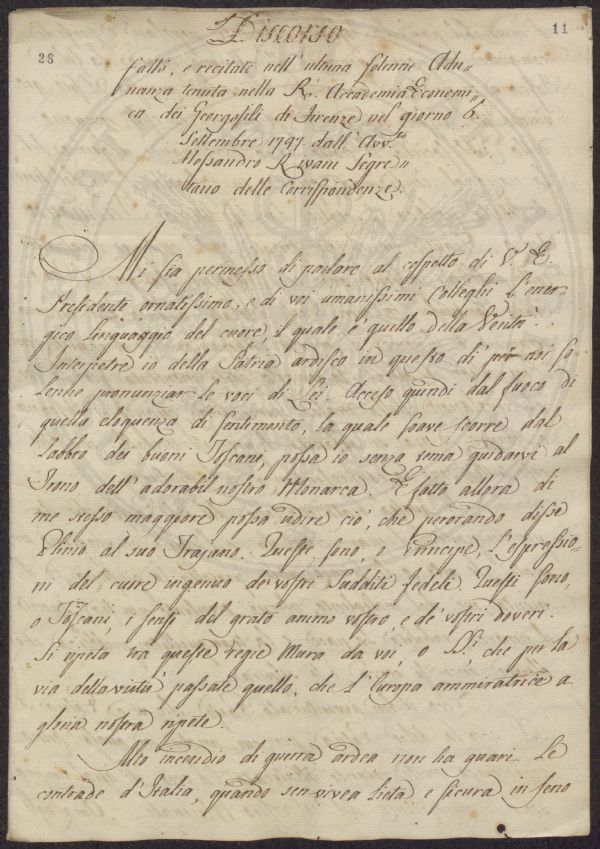 Discorso
11
28
fatto, e recitato nell' ultima solenne Adu„
nanza tenuta nella R.a Accademia Economi„
ca dei Georgofili di Firenze nel giorno 6.
Settembre 1797. dall' Avv.to
Alessandro Rivani Segre„
tario delle Corrispondenze.
Mi sia permesso di parlare al cospetto di V. E.
Presidente ornatissimo, e di voi umanissimi Colleghi l'ener-
gico linguaggio del cuore, il quale è quello della Verità.
Interpetre io della Patria ardisco in questo dì per noi so-
lenne pronunziar le voci di Lei. Acceso quindi dal fuoco di
quella eloquenza di sentimento, la quale soave scorre dal
labbro dei buoni Toscani, possa io senza tema guidarvi al
Trono dell' adorabil nostro Monarca. E fatto allora di
me stesso maggiore possa udire ciò, che perorando disse
Plinio al suo Trajano. Queste sono, o Principe, l'espressio-
ni del cuore ingenuo de' vostri Sudditi fedeli. Questi sono,
o Toscani, i sensi del grato animo vostro, e de' vostri doveri.
Si ripeta tra queste regie Mura da voi, o che per la
via della virtù passate quello, che l'Europa ammiratrice a
gloria nostra ripete.
Alto incendio di guerra ardea non ha guari le
contrade d'Italia, quando sen vivea lieta e sicura in seno